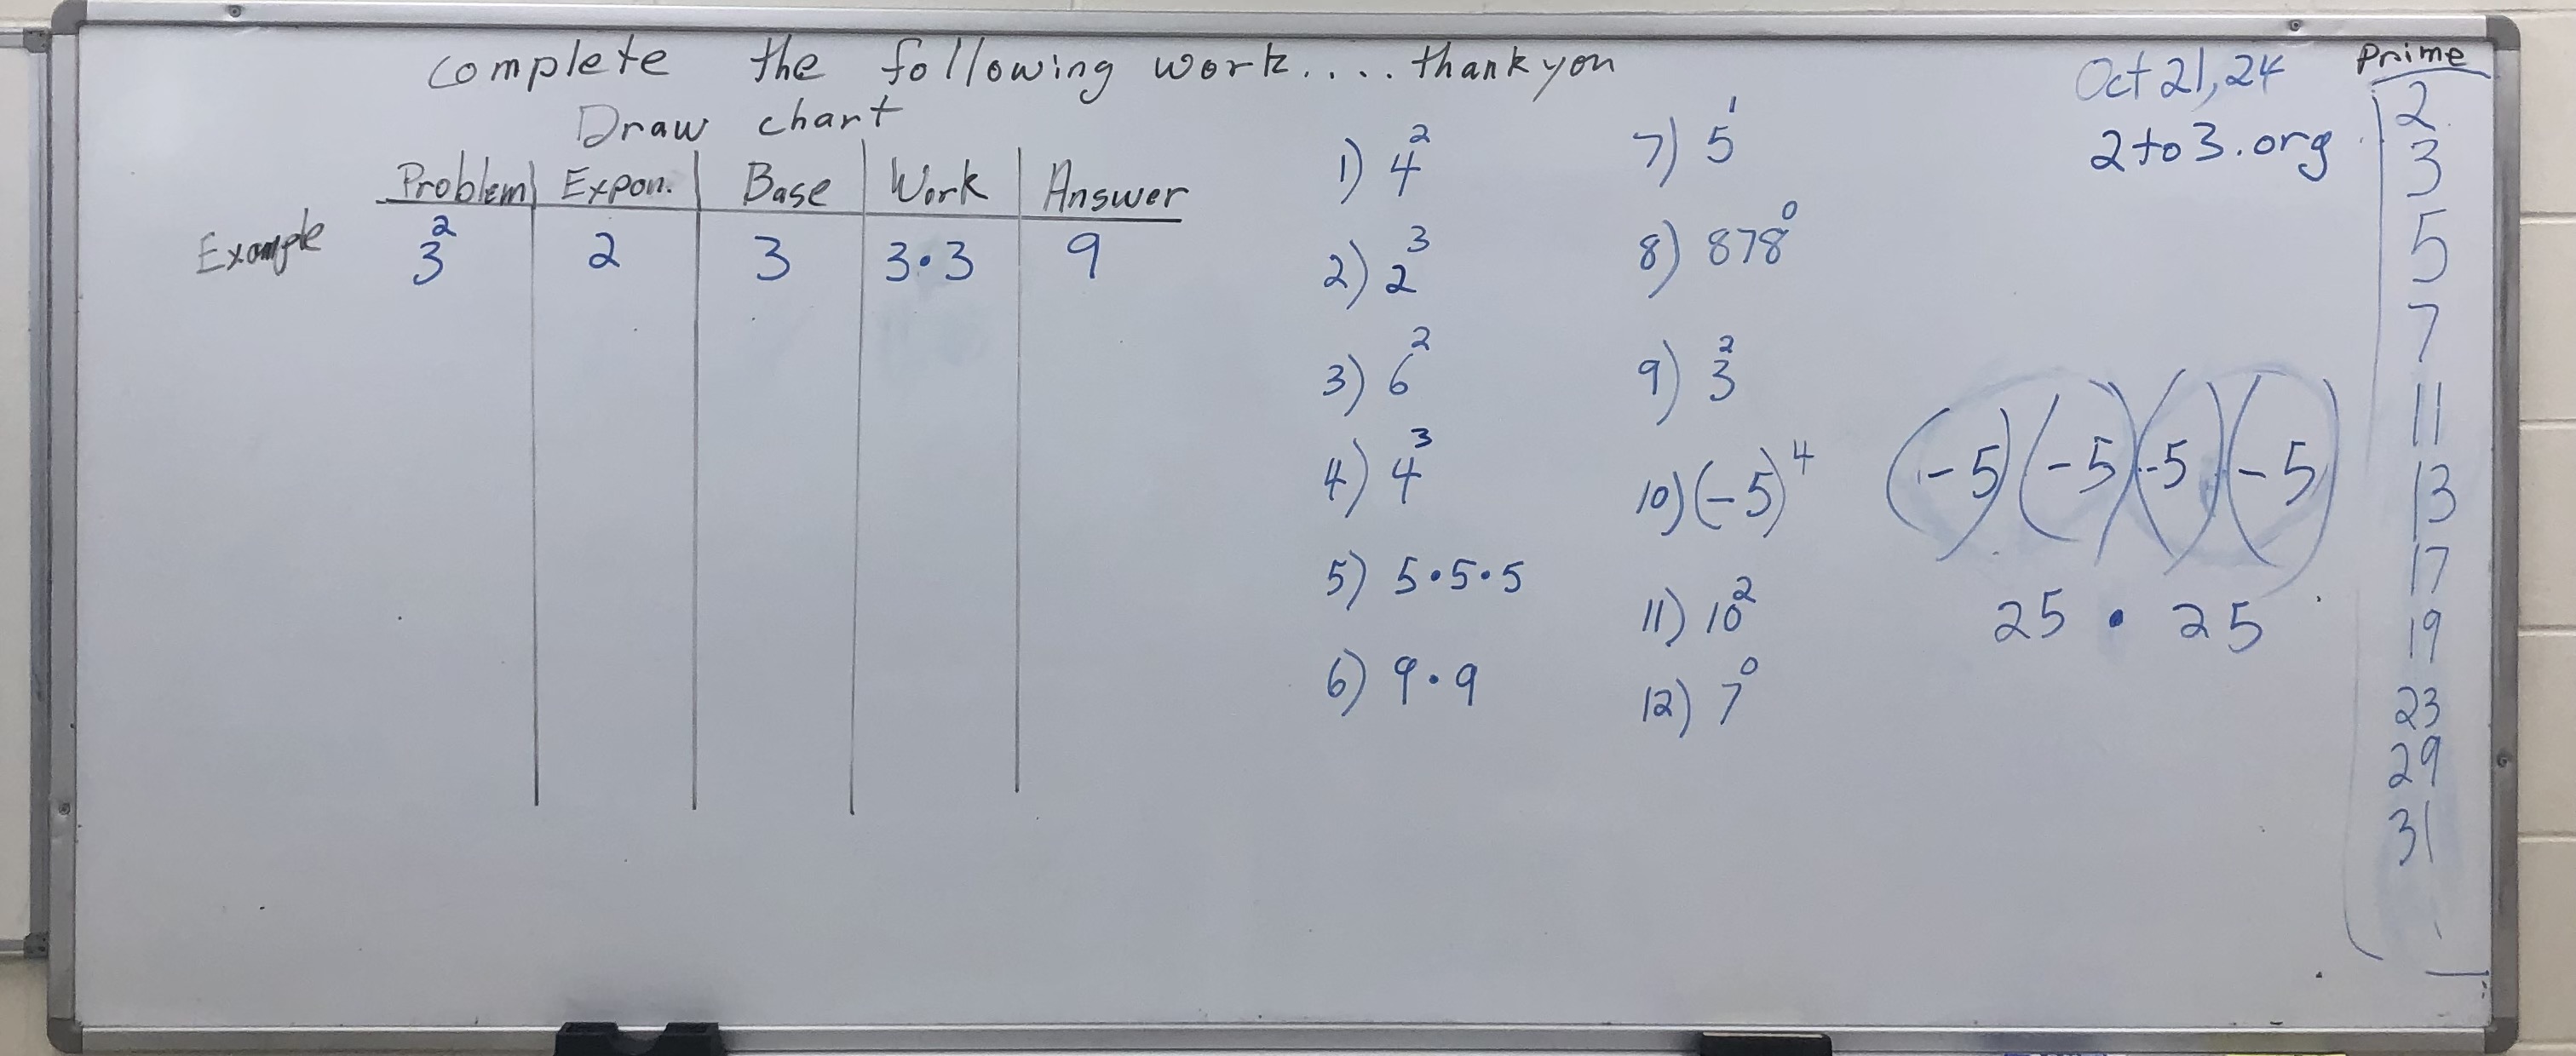 complete the following work.... thank you
Draw chart
Problem Expon. Base Work Answer
Example 3² 2 3 3•3 9
1) 4²
2) 2³
3) 6²
4) 4³
5) 5•5•5
6) 9•9
7) 5¹
8) 878⁰
9) 3²
10) (-5)⁴
11) 10²
12) 7⁰
(-5)(-5)(-5)(-5)
25 • 25
Oct 21, 24
2to3.org
Prime
2
3
5
7
11
13
17
19
23
29
31